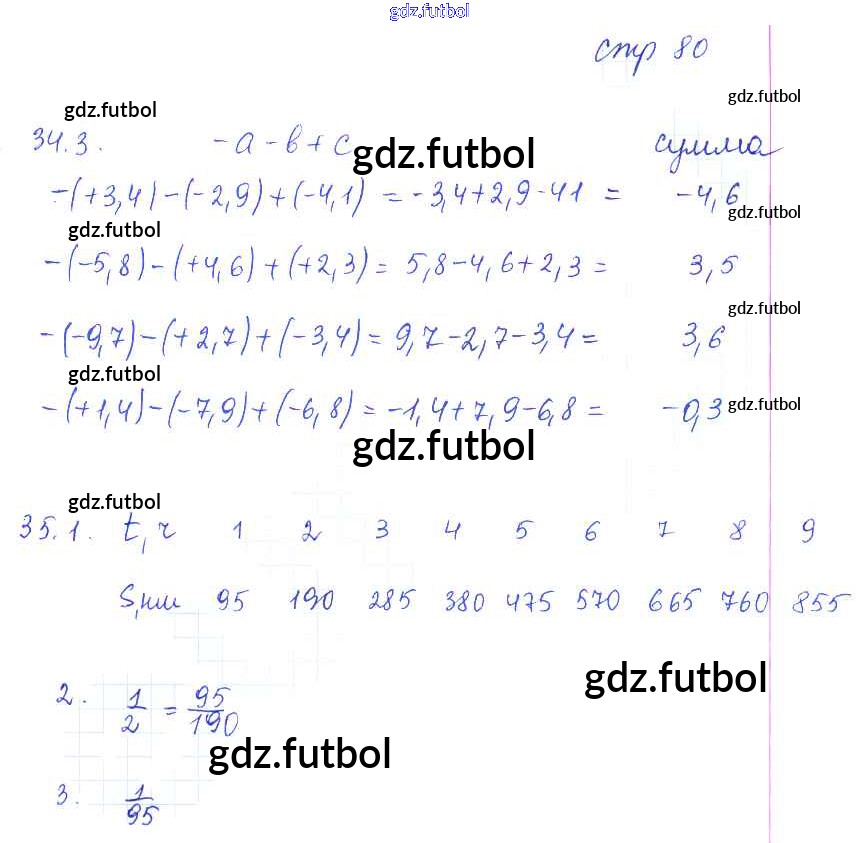 gdz.futbol
стр 80
gdz.futbol
gdz.futbol
34.3. -a-b+c gdz.futbol сумма
-(+3,4)-(-2,9)+(-4,1) = -3,4+2,9-41 = -4,6
gdz.futbol
gdz.futbol
-(-5,8)-(+4,6)+(+2,3) = 5,8-4,6+2,3 = 3,5
gdz.futbol
-(-9,7)-(+2,7)+(-3,4) = 9,7-2,7-3,4 = 3,6
gdz.futbol
-(+1,4)-(-7,9)+(-6,8) = -1,4+7,9-6,8 = -0,3 gdz.futbol
gdz.futbol
gdz.futbol
35.1. t,ч 1 2 3 4 5 6 7 8 9
S,км 95 190 285 380 475 570 665 760 855
gdz.futbol
2. 1/2 = 95/190
gdz.futbol
3. 1/95